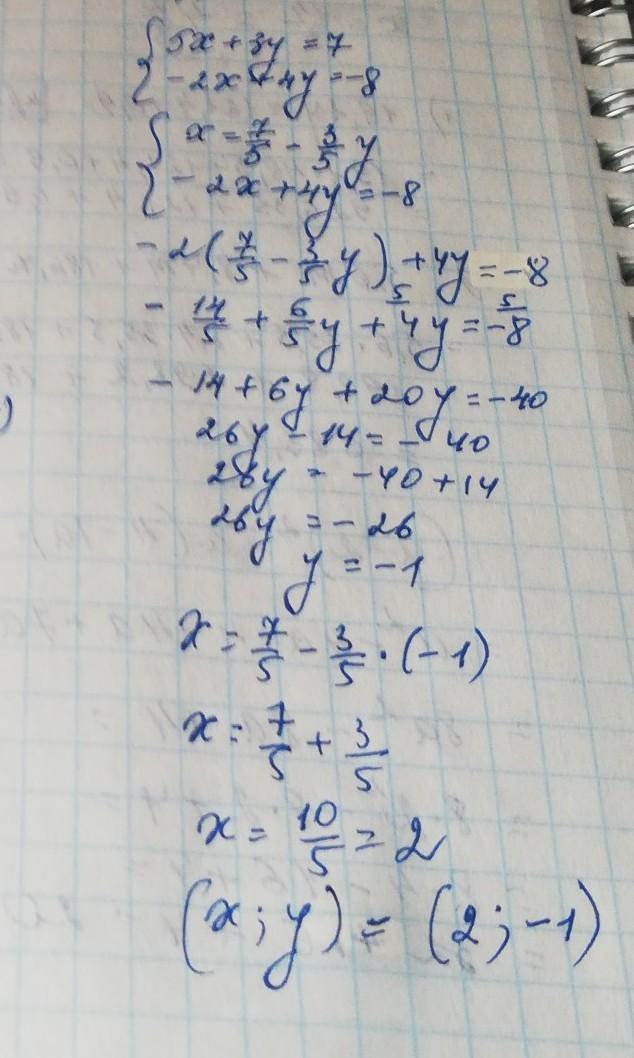 { 5x + 3y = 7
{ -2x + 4y = -8
{ x = 7/5 - 3/5 y
{ - 2x + 4y = -8
- 2 ( 7/5 - 3/5 y ) + 4y = -8
- 14/5 + 6/5 y + 5/ 4y = - 5/ 8
- 14 + 6y + 20y = -40
26y - 14 = - 40
26y = -40 + 14
26y = - 26
y = -1
x = 7/5 - 3/5 · (-1)
x = 7/5 + 3/5
x = 10/5 = 2
(x; y) = (2; -1)